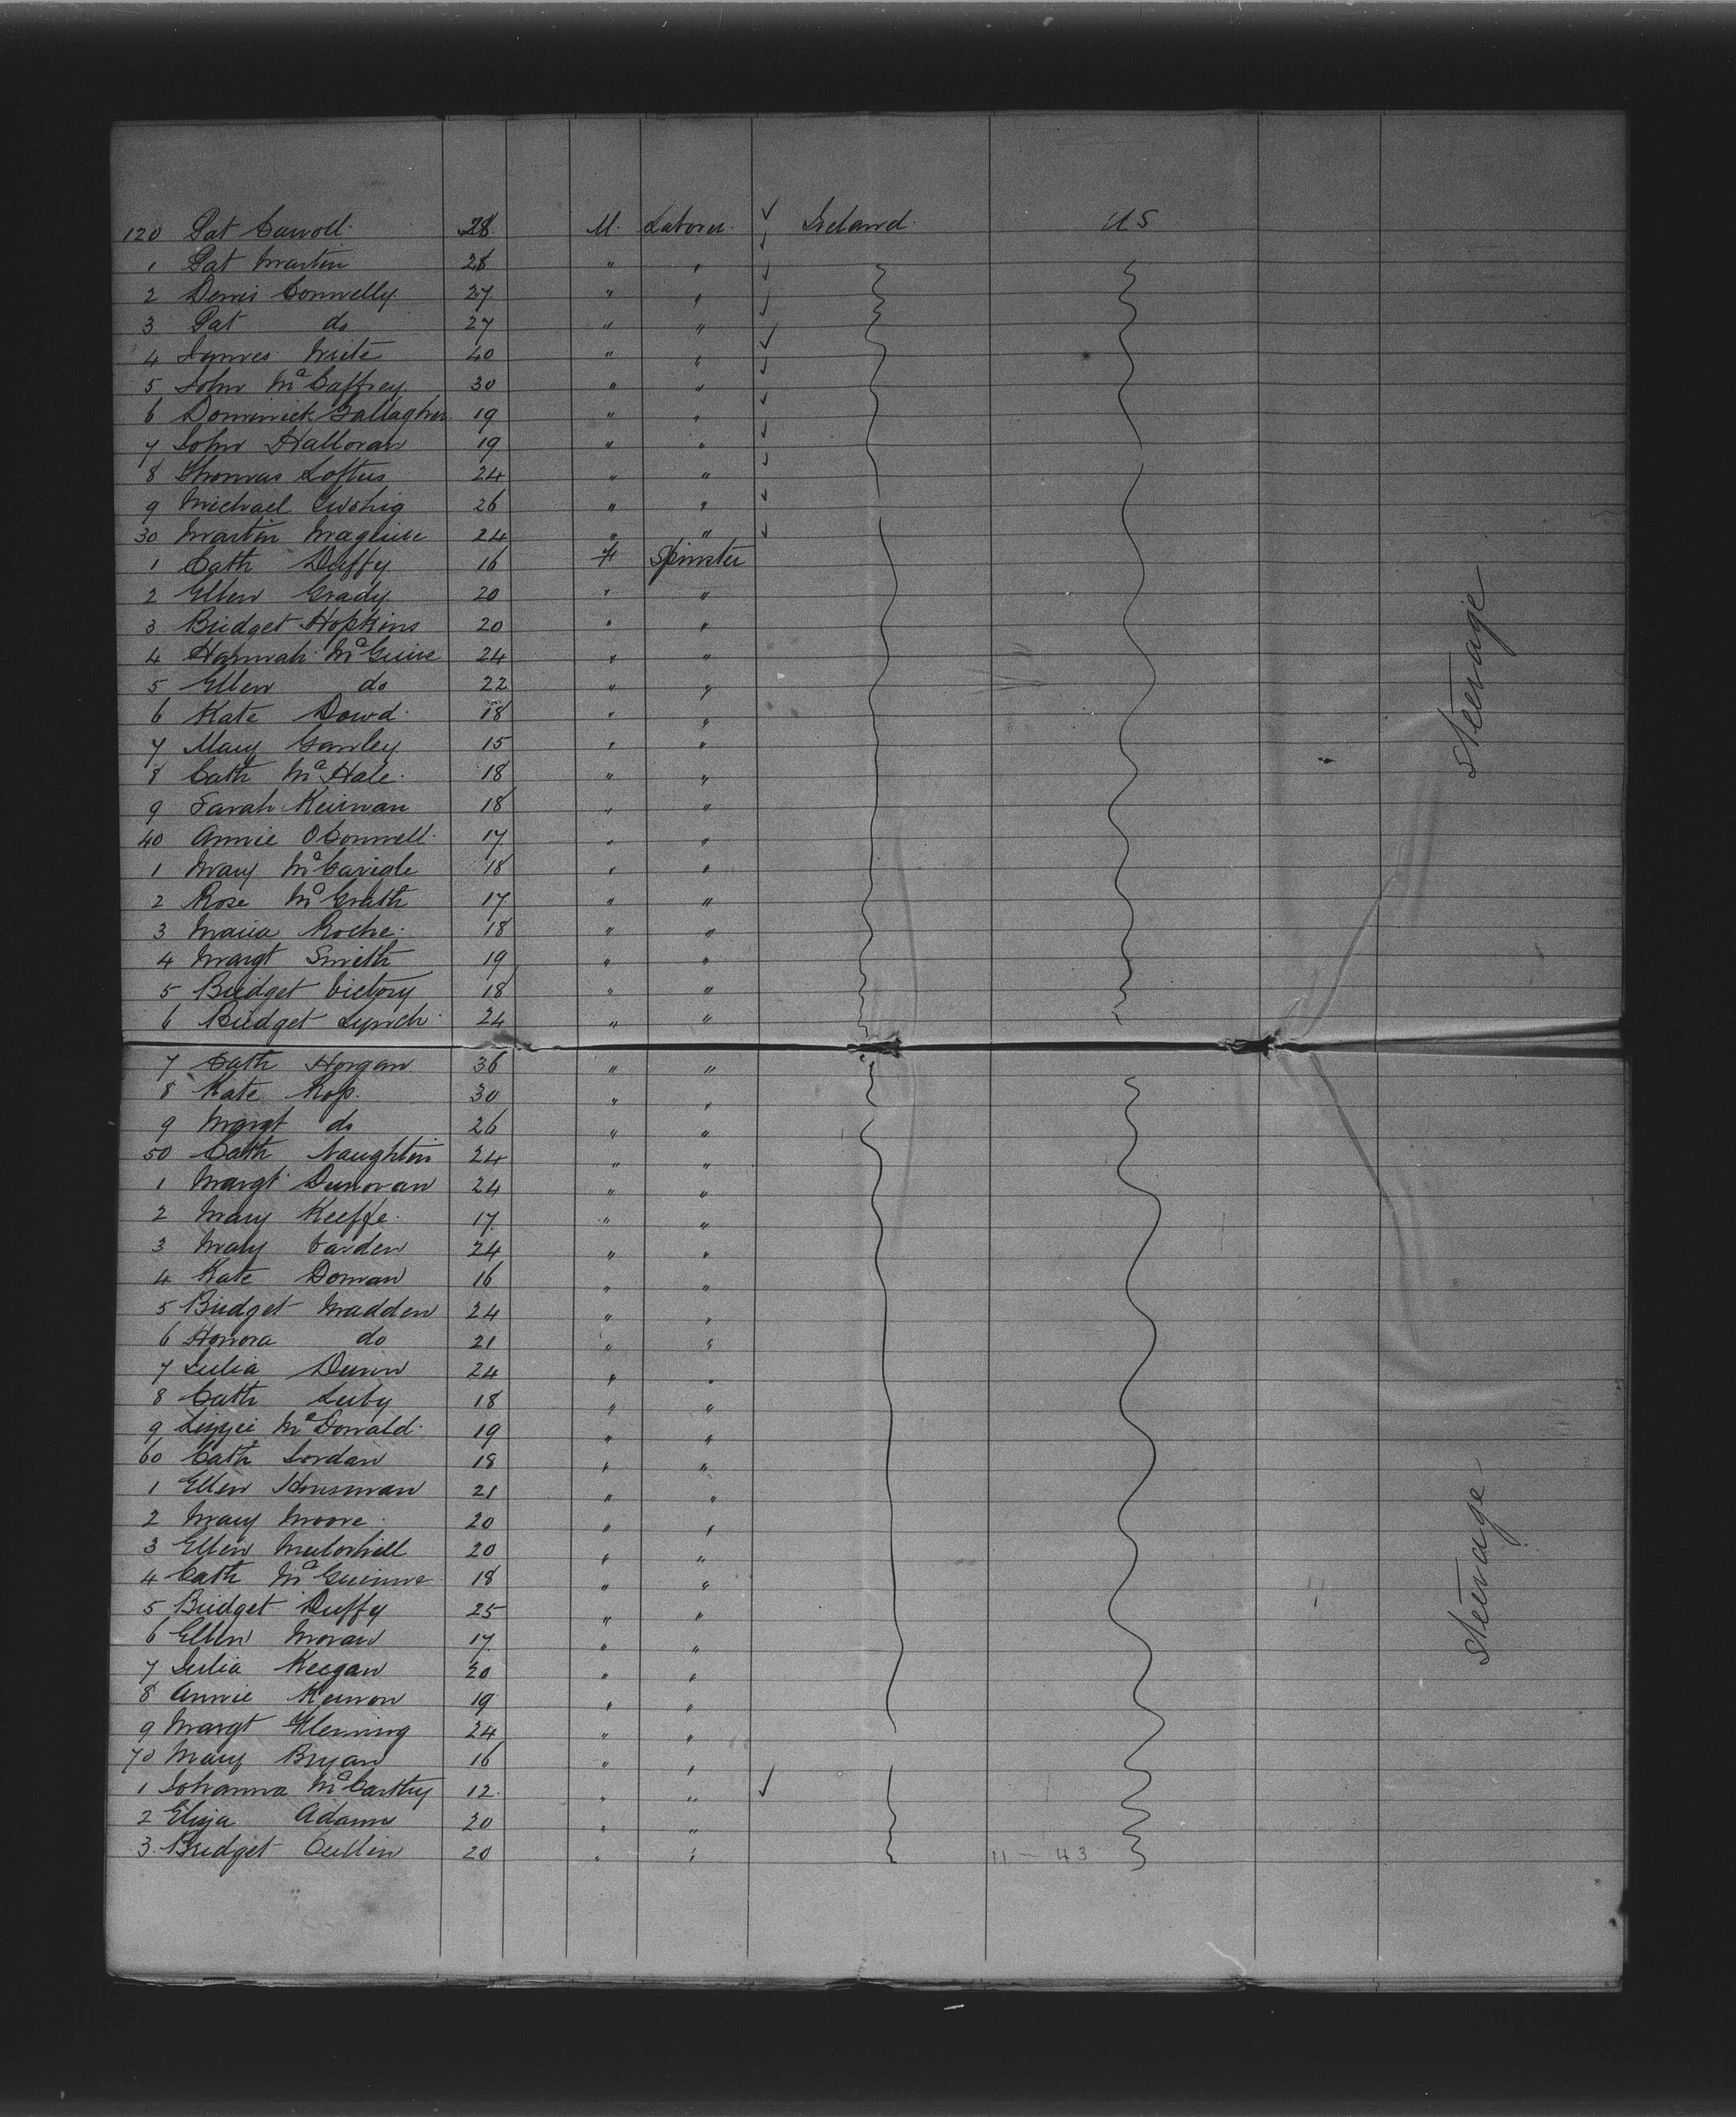 120 Pat Carroll. 28. M. Laborer. ✓ Ireland. US
1 Pat Martin 28 " " ✓
2 Denis Connelly 27. " " ✓
3 Pat do 27 " " ✓
4 James 40 " " ✓
5 John McCaffrey 30 " " ✓
6 Dominick Gallagher 19 " " ✓
7 John Halloran 19 " " ✓
8 Thomas Loftus 24 " " ✓
9 Michael 26 " " ✓
30 Martin Maguire 24 " " ✓
1 Cath Duffy 16 F Spinster
2 Ellen Grady 20 " "
3 Bridget Hopkins 20 " "
4 Hannah McGuire 24 " "
5 Ellen do 22 " "
6 Kate Dowd. 18 " "
7 Mary Gawley 15 " "
8 Cath McHale. 18 " "
9 Sarah Keirnan 18 " "
40 Annie OConnell. 17 " "
1 Mary McCarigle 18 " "
2 Rose McGrath 17 " "
3 Maria Roche. 18 " "
4 Margt Smith 19 " "
5 Bridget Victory 18 " "
6 Bridget Lynch 24 " "
7 Cath Horgan 36 " "
8 Kate Ross. 30 " "
9 Margt do 26 " "
50 Cath Naughtin 24 " "
1 Margt Dunovan 24 " "
2 Mary Keeffe. 17. " "
3 Mary Carden 24 " "
4 Kate Doman 16 " "
5 Bridget Madden 24 " "
6 Honora do 21 " "
7 Julia Dunn 24 " "
8 Cath Luby 18 " "
9 Lizzie McDonald. 19 " "
60 Cath Jordan 18 " "
1 Ellen Housman 21 " "
2 Mary Moore. 20 " "
3 Ellen 20 " "
4 Cath McGuinne 18 " "
5 Bridget Duffy 25 " "
6 Ellen Moran 17 " "
7 Julia Keegan 20 " "
8 Annie 19 " "
9 Margt Fleming 24 " "
70 Mary Bryan 16 " "
1 Johanna McCarthy 12. " " ✓
2 Eliza Adams 20 " "
3. Bridget Cullin 20 " " 11 - 43
Steerage
Steerage